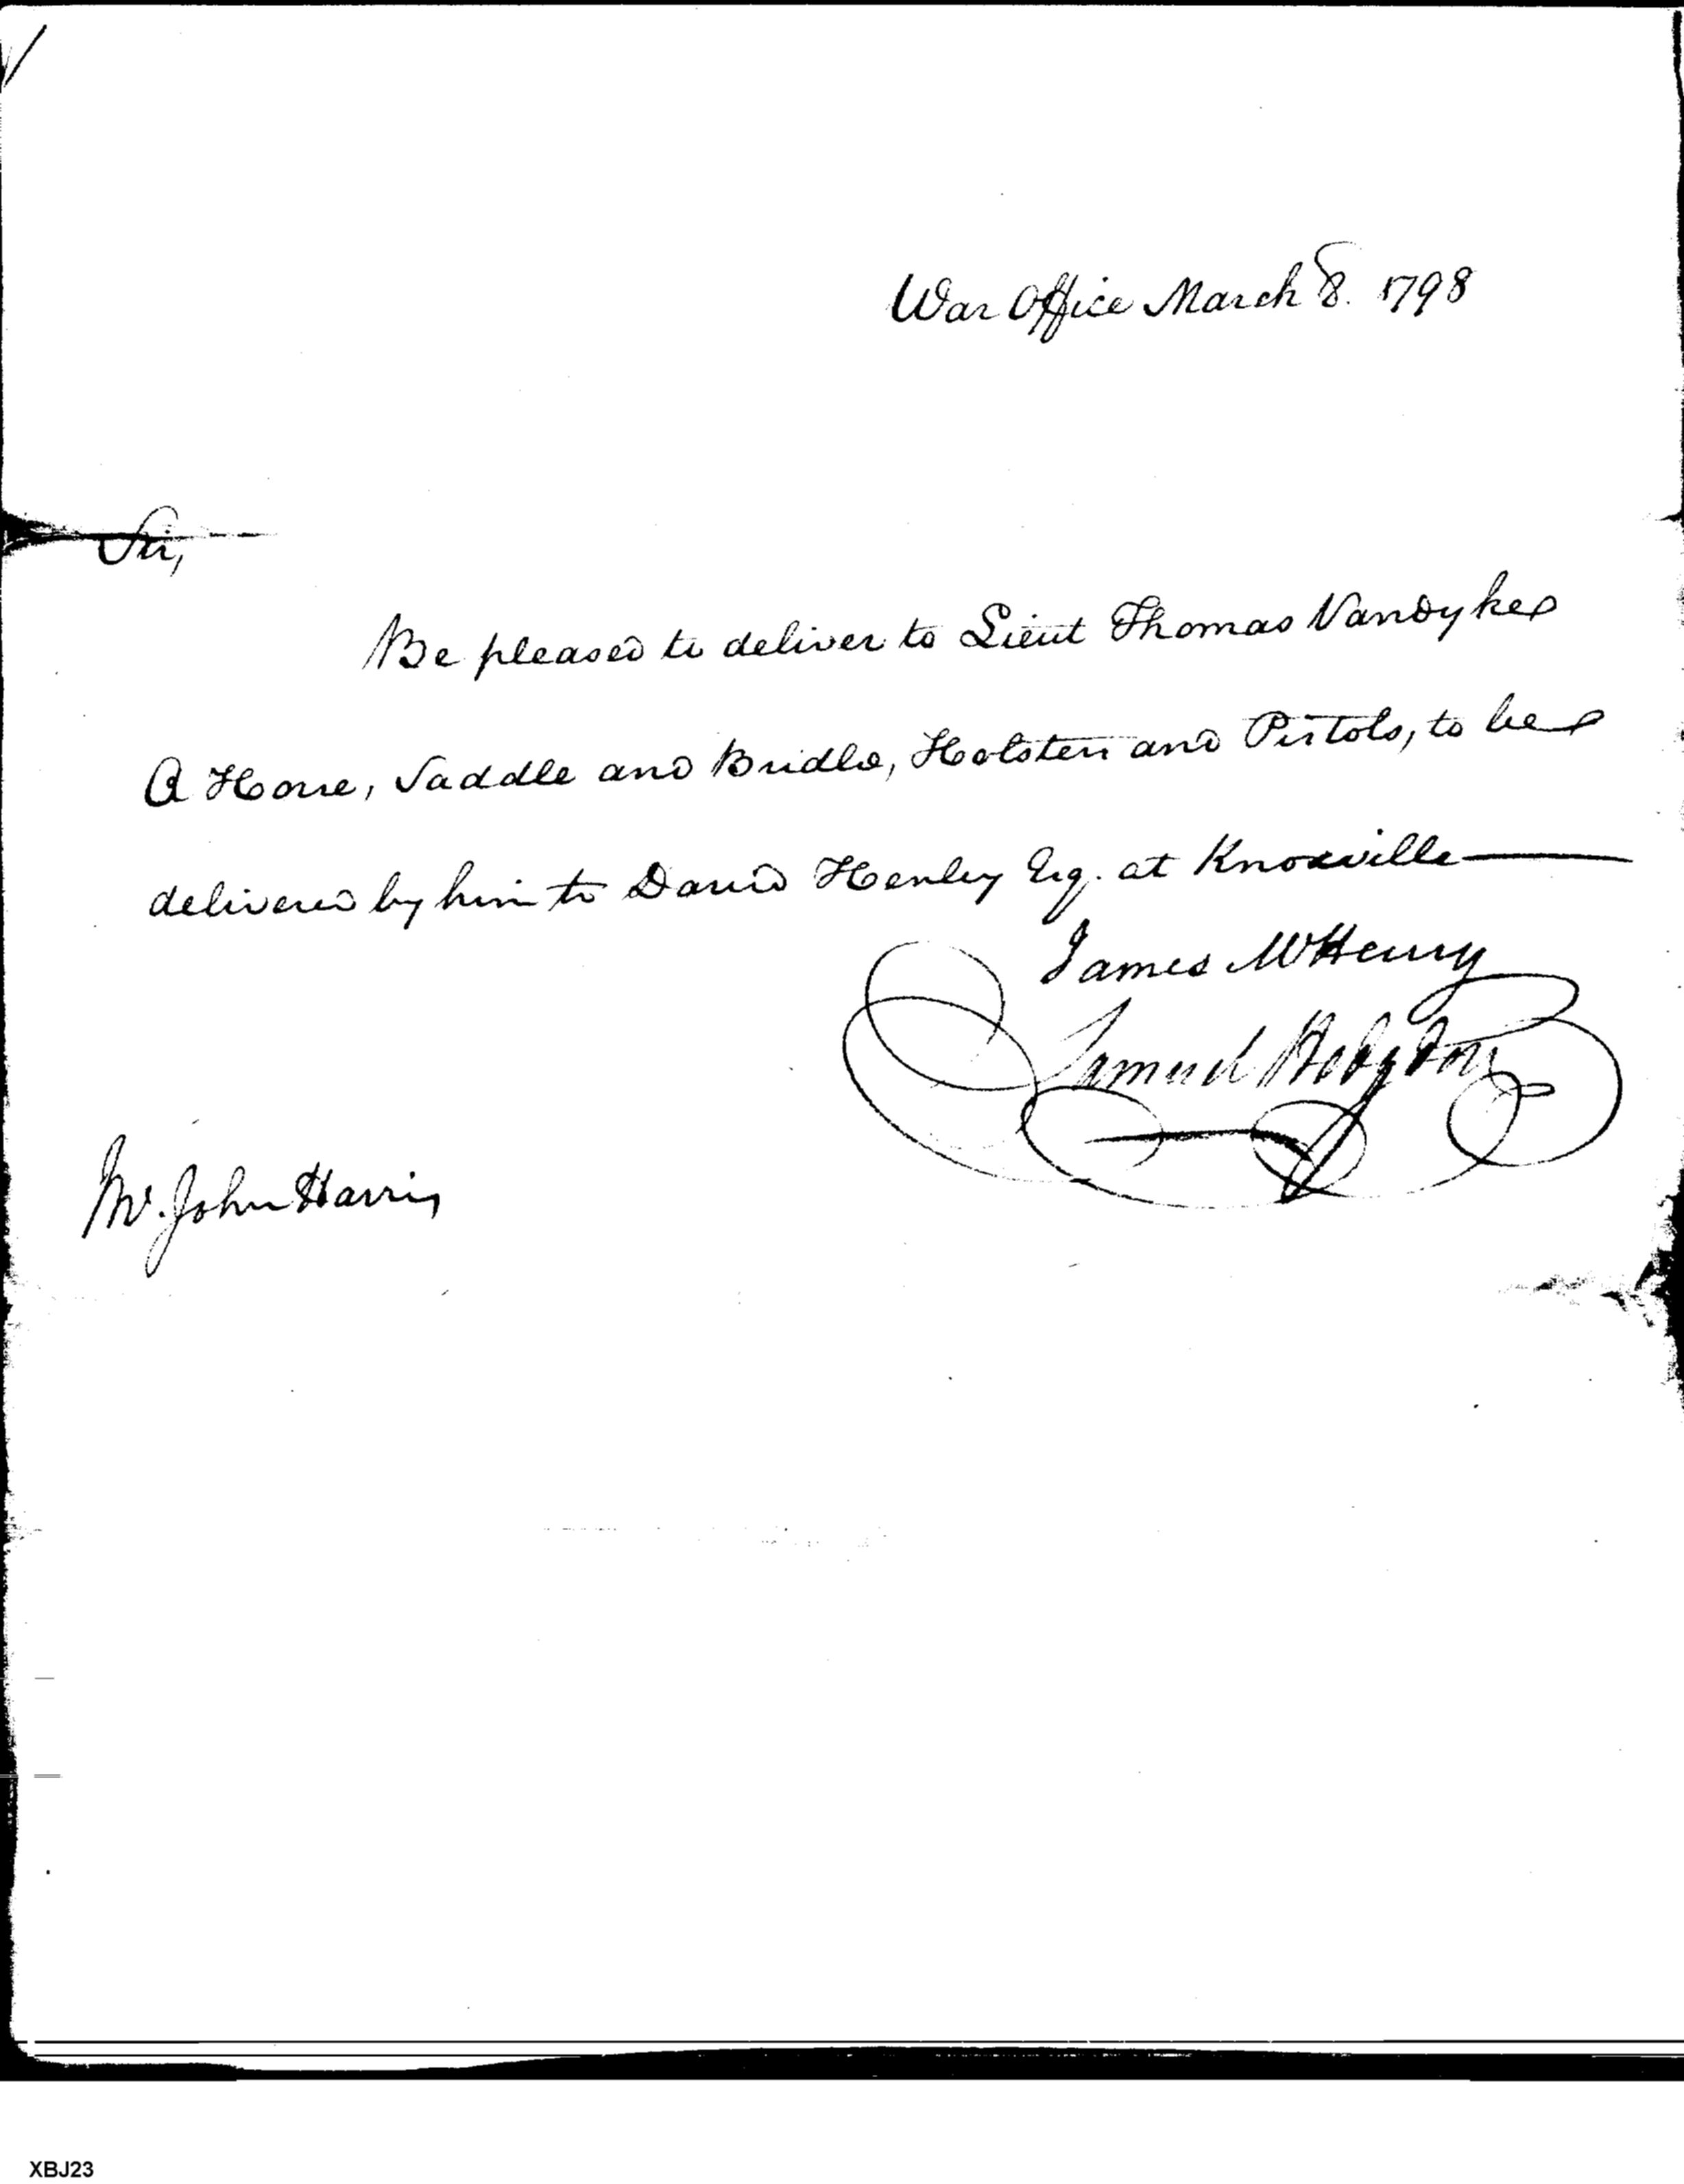 War Office March 8. 1798
Sir,
Be pleased to deliver to Lieut Thomas Vandyke
A Horse, Saddle and Bridle, Holsters and Pistols, to be
delivered by him to David Henley Esq. at Knoxville
James McHenry
Samuel Hodgdon
Mr. John Harris
XBJ23